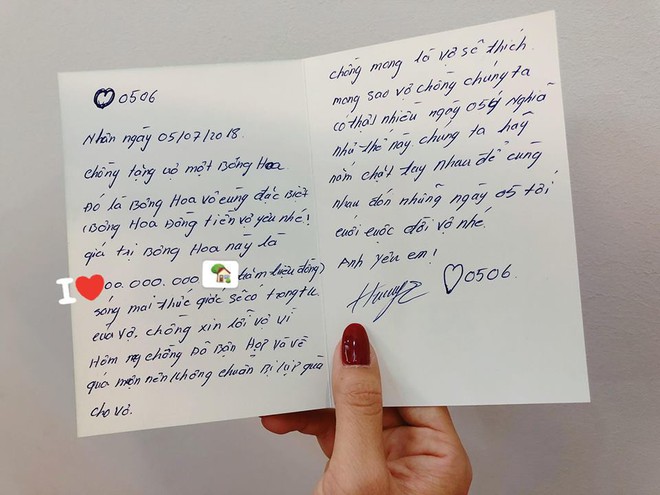 ♡0506
Nhân ngày 05/07/2018.
Chồng tặng vợ một Bông Hoa
Đó là Bông Hoa vô cùng đặc Biệt
(Bông Hoa Đồng tiền vợ yêu nhé!
giá trị Bông Hoa này là
I ❤️ 00.000.000 trăm triệu đồng)
sáng mai thức giấc sẽ có trong tk
của vợ. chồng xin lỗi vợ vì
Hôm nay chồng Đỗ Bận Họp và về
quá muộn nên không chuẩn Bị kịp quà
cho vợ.
chồng mong là vợ sẽ thích
mong sao vợ chồng chúng ta
có thật nhiều ngày 05 Nghĩa
như thế này chúng ta hãy
nắm chặt tay nhau để cùng
nhau đón những ngày 05 tới
cuối cuộc đời vợ nhé.
Anh yêu em!
♡0506.